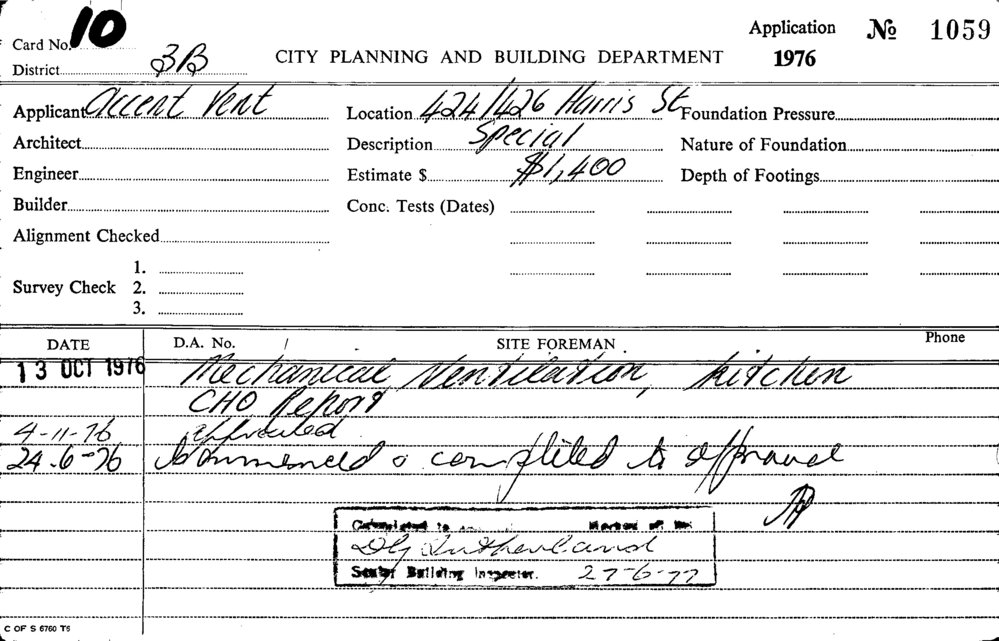 Card No. 10
Application No 1059
District 3B
CITY PLANNING AND BUILDING DEPARTMENT
1976
Applicant Accent Vent
Location 424/426 Harris St
Foundation Pressure
Architect
Description Special
Nature of Foundation
Engineer
Estimate $ $1,400
Depth of Footings
Builder
Conc. Tests (Dates)
Alignment Checked
1.
Survey Check 2.
3.
DATE D.A. No. SITE FOREMAN Phone
13 OCT 1976 Mechanical Ventilation, kitchen
CHO Report
4-11-76 approved
24-6-76 Commenced & completed to approval
Completed to
Marked off by
Sutherland
Senior Building Inspector. 27-6-77
C OF S 6760 T6